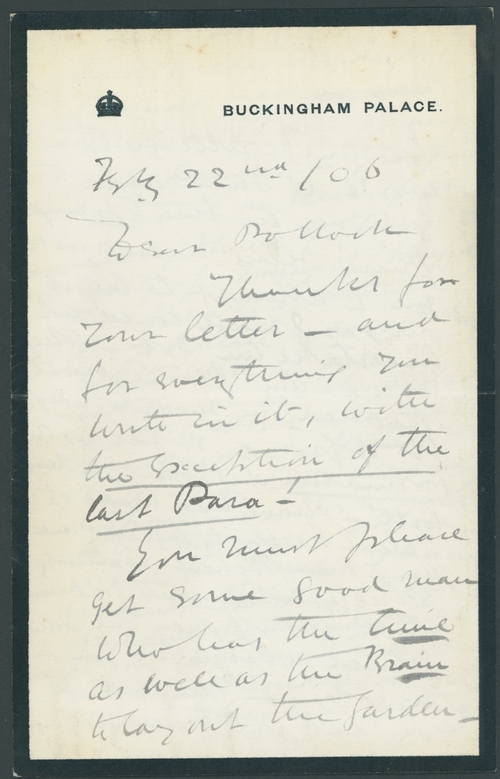 BUCKINGHAM PALACE.
Feby 22nd /06
Dear Pollock
Thanks for
your letter – and
for everything you
write in it, with
the exception of the
last Para –
You must please
get some good man
who has the time
as well as the Brain
to lay out the Garden –